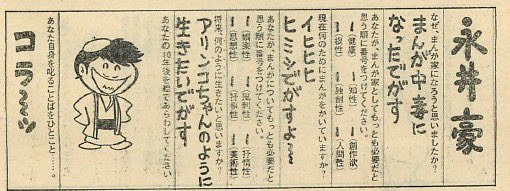 永井豪
なぜ、まんが家になろうと思いましたか?
まんが中毒に
なったでがす
あなたが、まんが家としてもっとも必要だと
思う順に番号をつけてください。
(健康) (知性) (創作欲)
(根性) (独創性) (人間性)
現在何のためにまんがをかいていますか?
イヒヒヒ
ヒミツでがすよ〜
あなたが、まんがについてもっとも必要だと
思う順に番号をつけてください。
(娯楽性) (風刺性) (抒情性)
(思想性) (美術性)
将来、何のように生きたいと思いますか?
アリンコちゃんのように
生きたいでがす
あなたの10年後を絵であらわしてください
あなた自身を叱ることばをひとこと……。
コラ〜ッ